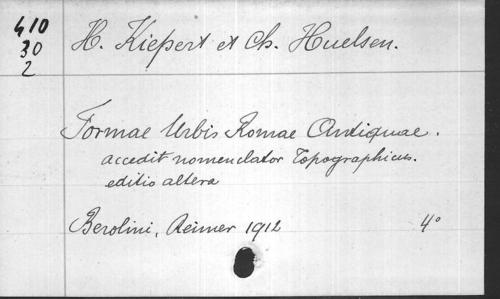 410
30
2
H. Kiepert et Ch. Huelsen.
Formae Urbis Romae Antiquae.
accedit nomenclator Topographicus.
editio altera
Berolini, Reimer 1912 4°